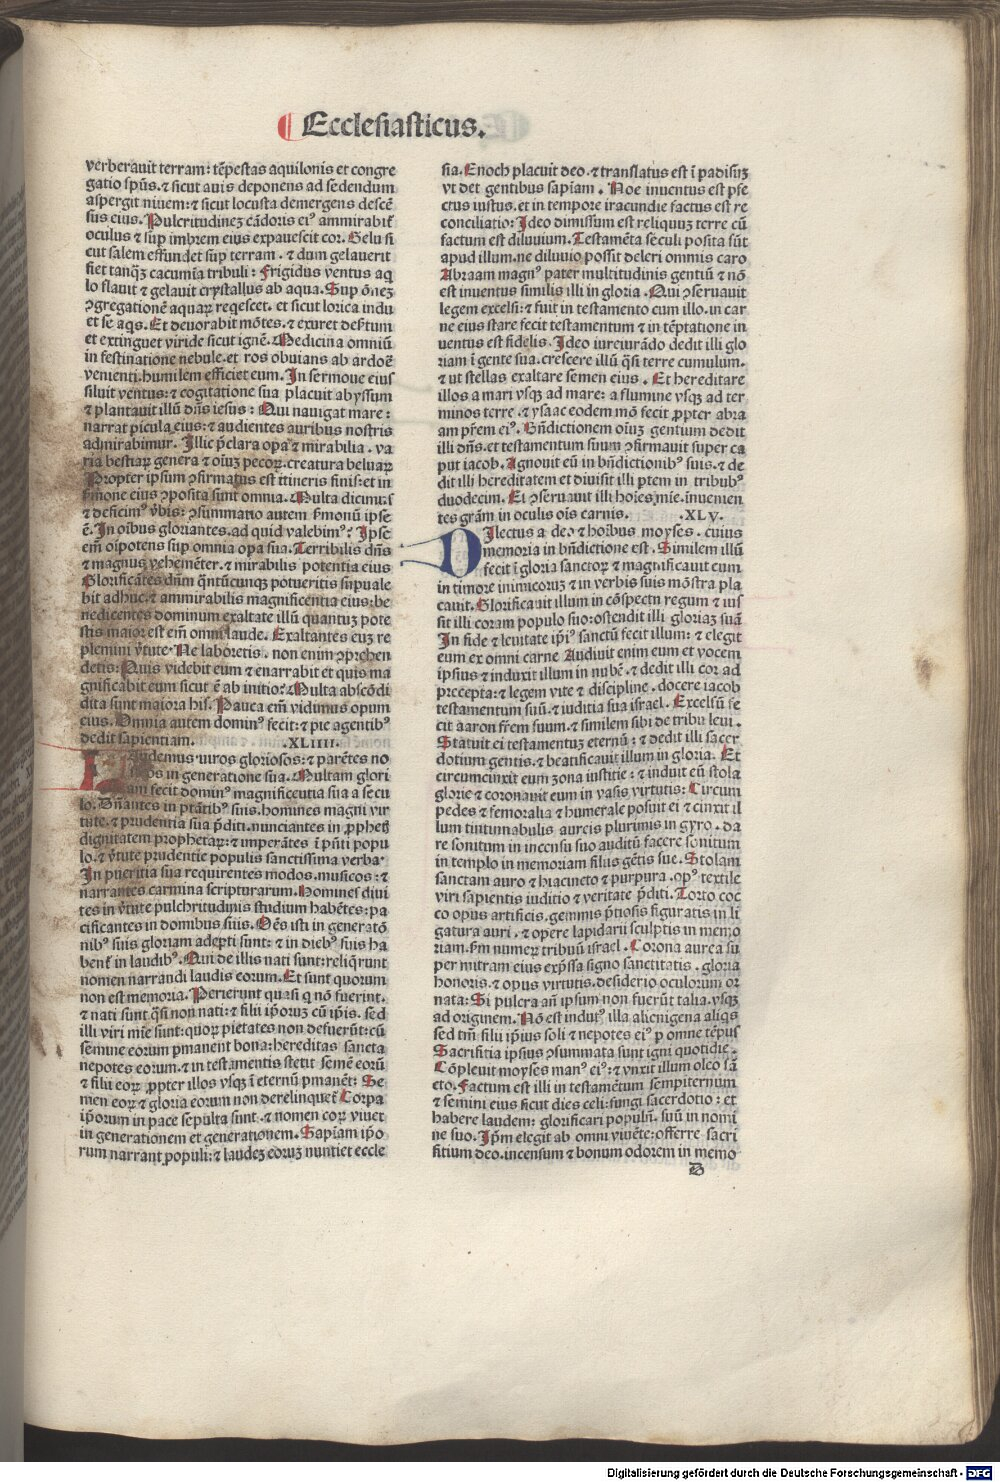 Ecclesiasticus.
verberauit terram: tēpestas aquilonis et congre
gatio spūs. ⁊ sicut auis deponens ad sedendum
aspergit niuem: ⁊ sicut locusta demergens descē
sus eius. Pulcritudinez cādoris ei⁹ ammirabit̄
oculus ⁊ sup imbrem eius expauescit cor. Gelu si
cut salem effundet sup terram. ⁊ dum gelauerit
fiet tanqz cacumīa tribuli: Frigidus ventus aq
lo flauit ⁊ gelauit crystallus ab aqua. Sup ōnez
ↄgregationē aquaꝝ reqescet. et sicut lorica indu
et se aqs. Et deuorabit mōtes. ⁊ exuret desˀtum
et extinguet viride sicut ignē. Medicina omniū
in festinatione nebule. et ros obuians ab ardoē
venienti. humilem efficiet eum. In sermoue eius
siluit ventus: ⁊ cogitatione sua placuit abyssum
⁊ plantauit illū dn̄s iesus: Qui nauigat mare:
narrat picula eius: ⁊ audientes auribus nostris
admirabimur. Illic p̄clara opa ⁊ mirabilia. va
ria bestiaꝝ genera ⁊ oīuz pecoꝝ. creatura beluaꝝ
Propter ipsum ↄfirmatus est itineris finis: et in
ẜmone eius ↄposita sunt omnia. Multa dicimus
⁊ deficim⁹ v̄bis: ↄsummatio autem ẜmonū ipse
ē. In oībus gloriantes. ad quid valebim⁹: Ipse
em̄ oīpotens sup omnia opa sua. Terribilis dn̄s
⁊ magnus vehemēter. ⁊ mirabilis potentia eius
Glorificātes dn̄m q̄ntūcunqz potueritis sup̄uale
bit adhuc. ⁊ ammirabilis magnificentia eius: be
nedicentes dominum exaltate illū quantuz pote
stis maior est em̄ omni laude. Exaltantes euz re
plemini v̄tute. Ne laboretis. non enim ↄp̄rehen
detis: Quis videbit eum ⁊ enarrabit et quis ma
gnificabit eum sicut ē ab initio: Multa abscōdi
dita sunt maiora his. Pauca em̄ vidimus opum
eius. Omnia autem domin⁹ fecit: ⁊ pie agentib⁹
dedit sapientiam. .XLIIII.
Laudemus viros gloriosos: ⁊ parētes no
stros in generatione sua. Multam glori
am fecit domin⁹ magnificentia sua a secu
lo. Dn̄antes in ptātib⁹ suis. homines magni vir
tute. ⁊ prudentia sua p̄diti. nunciantes in ꝓphetis
dignitatem prophetaꝝ: ⁊ imperātes ī p̄nti popu
lo. ⁊ v̄tute prudentie populis sanctissima verba.
In pueritia sua requirentes modos. musicos: ⁊
narrantes carmina scripturarum. Homines diui
tes in v̄tute pulchritudinis studium habētes: pa
cificantes in domibus suis. Oēs isti in generatō
nib⁹ suis gloriam adepti sunt: ⁊ in dieb⁹ suis ha
bent̄ in laudib⁹. Qui de illis nati sunt: reliq̄runt
nomen narrandi laudis eorum. Et sunt quorum
non est memoria. Perierunt quasi q nō fuerint.
⁊ nati sunt q̄si non nati: ⁊ filii ip̄oruz cū ip̄is. sed
illi viri mīe sunt: quoꝝ pietates non defuerūt: cū
semine eorum pmanent bona: hereditas sancta
nepotes eorum. ⁊ in testamentis stetit semē eorū
⁊ filii eoꝝ ꝓpter illos vsqz ī eternū pmanēt: Se
men eoꝝ ⁊ gloria eorum non derelinquet̄ Corpa
ip̄orum in pace sepulta sunt. ⁊ nomen coꝝ viuet
in generationem et generationem. Sapīam ip̄o
rum narrant populi: ⁊ laudez eoruz nuntiet eccle
sia. Enoch placuit deo. ⁊ translatus est ī padisuz
vt det gentibus sapīam. Noe inuentus est pfe
ctus iustus. et in tempore iracundie factus est re
conciliatio: Ideo dimissum est reliquuz terre cū
factum est diluuium. Testamēta seculi posita sūt
apud illum. ne diluuio possit deleri omnis caro
Abraam magn⁹ pater multitudinis gentiū ⁊ nō
est inuentus similis illi in gloria. Qui ↄseruauit
legem excelsi: ⁊ fuit in testamento cum illo. in car
ne eius stare fecit testamentum ⁊ in tēptatione in
uentus est fidelis. Ideo iureiurādo dedit illi glo
riam ī gente sua. crescere illū q̄si terre cumulum.
⁊ ut stellas exaltare semen eius. Et hereditare
illos a mari vsqz ad mare: a flumine vsqz ad ter
minos terre. ⁊ ysaac eodem mō fecit ꝓpter abra
am p̄rem ei⁹. Bn̄dictionem oīuz gentium dedit
illi dn̄s. et testamentum suum ↄfirmauit super ca
put iacob. Agnouit eū in bn̄dictionib⁹ suis. ⁊ de
dit illi hereditatem et diuisit illi ptem in tribub⁹
duodecim. Et ↄseruauit illi hoīes mie. inuenien
tes grām in oculis oīs carnis. .XLV.
DIlectus a deo ⁊ hoībus moyses. cuius
memoria in bn̄dictione est. Similem illū
fecit ī gloria sanctoꝝ ⁊ magnificauit eum
in timore inimicoruz ⁊ in verbis suis mōstra pla
cauit. Glorificauit illum in cōspectu regum ⁊ ius
sit illi coram populo suo: ostendit illi gloriaz suā
In fide ⁊ leuitate ip̄i⁹ sanctū fecit illum: ⁊ elegit
eum ex omni carne Audiuit enim eum et vocem
ipsius ⁊ induxit illum in nubē. ⁊ dedit illi cor ad
precepta: ⁊ legem vite ⁊ discipline. docere iacob
testamentum suū. ⁊ iuditia sua israel. Excelsū fe
cit aaron frēm suum. ⁊ similem sibi de tribu leui.
Statuit ei testamentuz eternū: ⁊ dedit illi sacer
dotium gentis. ⁊ beatificauit illum in gloria. Et
circumcinxit eum zona iustitie: ⁊ induit eū stola
glorie ⁊ coronauit eum in vasis virtutis: Circum
pedes ⁊ femoralia ⁊ humerale posuit ei ⁊ cinxit il
lum tintinnabulis aureis plurimis in gyro. da
re sonitum in incensu suo auditū facere sonitum
in templo in memoriam filiis gētis sue. Stolam
sanctam auro ⁊ hiacincto ⁊ purpura. op⁹ textile
viri sapientis iuditio ⁊ veritate p̄diti. Torto coc
co opus artificis. gemmis p̄tiosis figuratis in li
gatura auri. ⁊ opere lapidarii sculptis in memo
riam. ẜm numeꝝ tribuū israel. Corona aurea su
per mitram eius exp̄ssa signo sanctitatis. gloria
honoris. ⁊ opus virtutis. desiderio oculorum or
nata: Si pulcra an̄ ipsum non fuerūt talia. vsqz
ad originem. Nō est indut⁹ illa alienigena aliqs
sed tm̄ filii ip̄ius soli ⁊ nepotes ei⁹ p omne tēpus
Sacrifitia ipsius ↄsummata sunt igni quotidie.
Cōpleuit moyses man⁹ ei⁹: ⁊ vnxit illum oleo sā
cto. Factum est illi in testamētum sempiternum
⁊ semini eius sicut dies celi: fungi sacerdotio: et
habere laudem: glorificari populū. suū in nomi
ne suo. Ip̄m elegit ab omni viuēte: offerre sacri
fitium deo. incensum ⁊ bonum odorem in memo
B
Digitalisierung gefördert durch die Deutsche Forschungsgemeinschaft - DFG